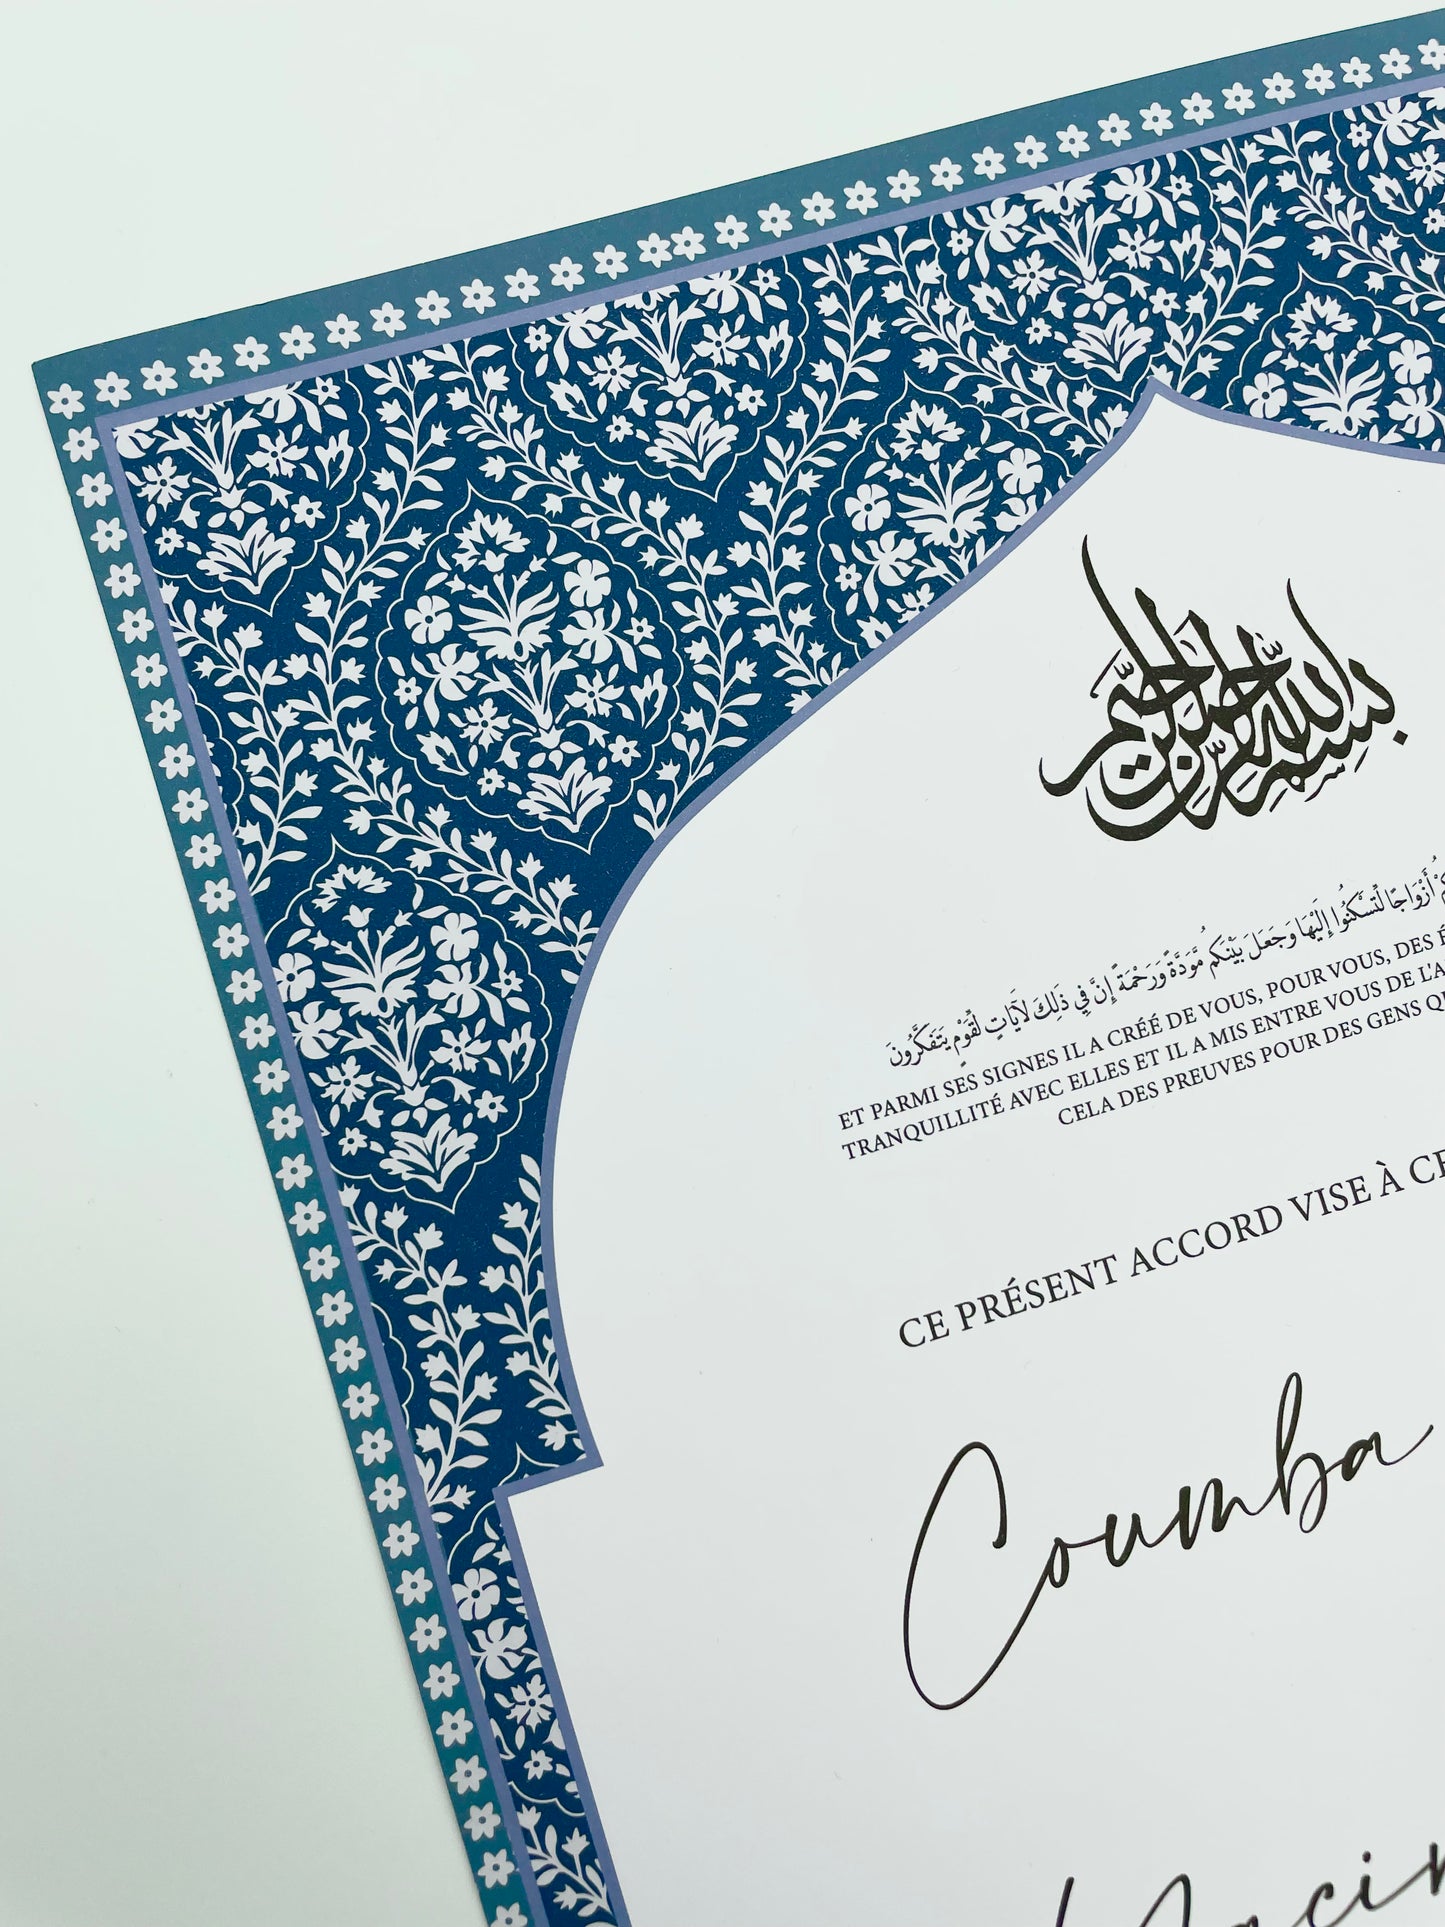 بسم الله الرحمن الرحيم
أَزْوَاجًا لِّتَسْكُنُوا إِلَيْهَا وَجَعَلَ بَيْنَكُم مَّوَدَّةً وَرَحْمَةً إِنَّ فِي ذَٰلِكَ لَآيَاتٍ لِّقَوْمٍ يَتَفَكَّرُونَ
ET PARMI SES SIGNES IL A CRÉÉ DE VOUS, POUR VOUS, DES
TRANQUILLITÉ AVEC ELLES ET IL A MIS ENTRE VOUS DE
CELA DES PREUVES POUR DES GENS
CE PRÉSENT ACCORD VISE À
Coumba